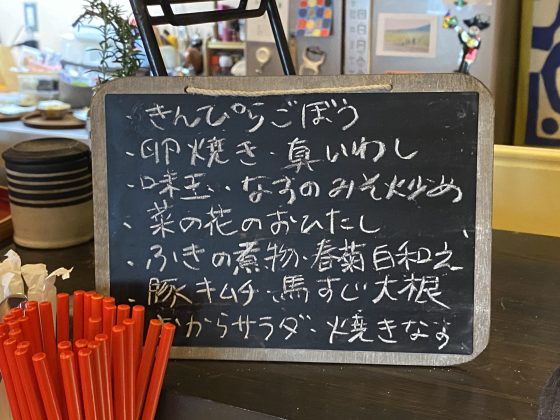 ・きんぴらごぼう
・卵焼き・真いわし
・味玉・・なすのみそ炒め
・菜の花のおひたし
・ふきの煮物・春菊白和え
・豚キムチ・馬すじ大根
おからサラダ・焼きなす